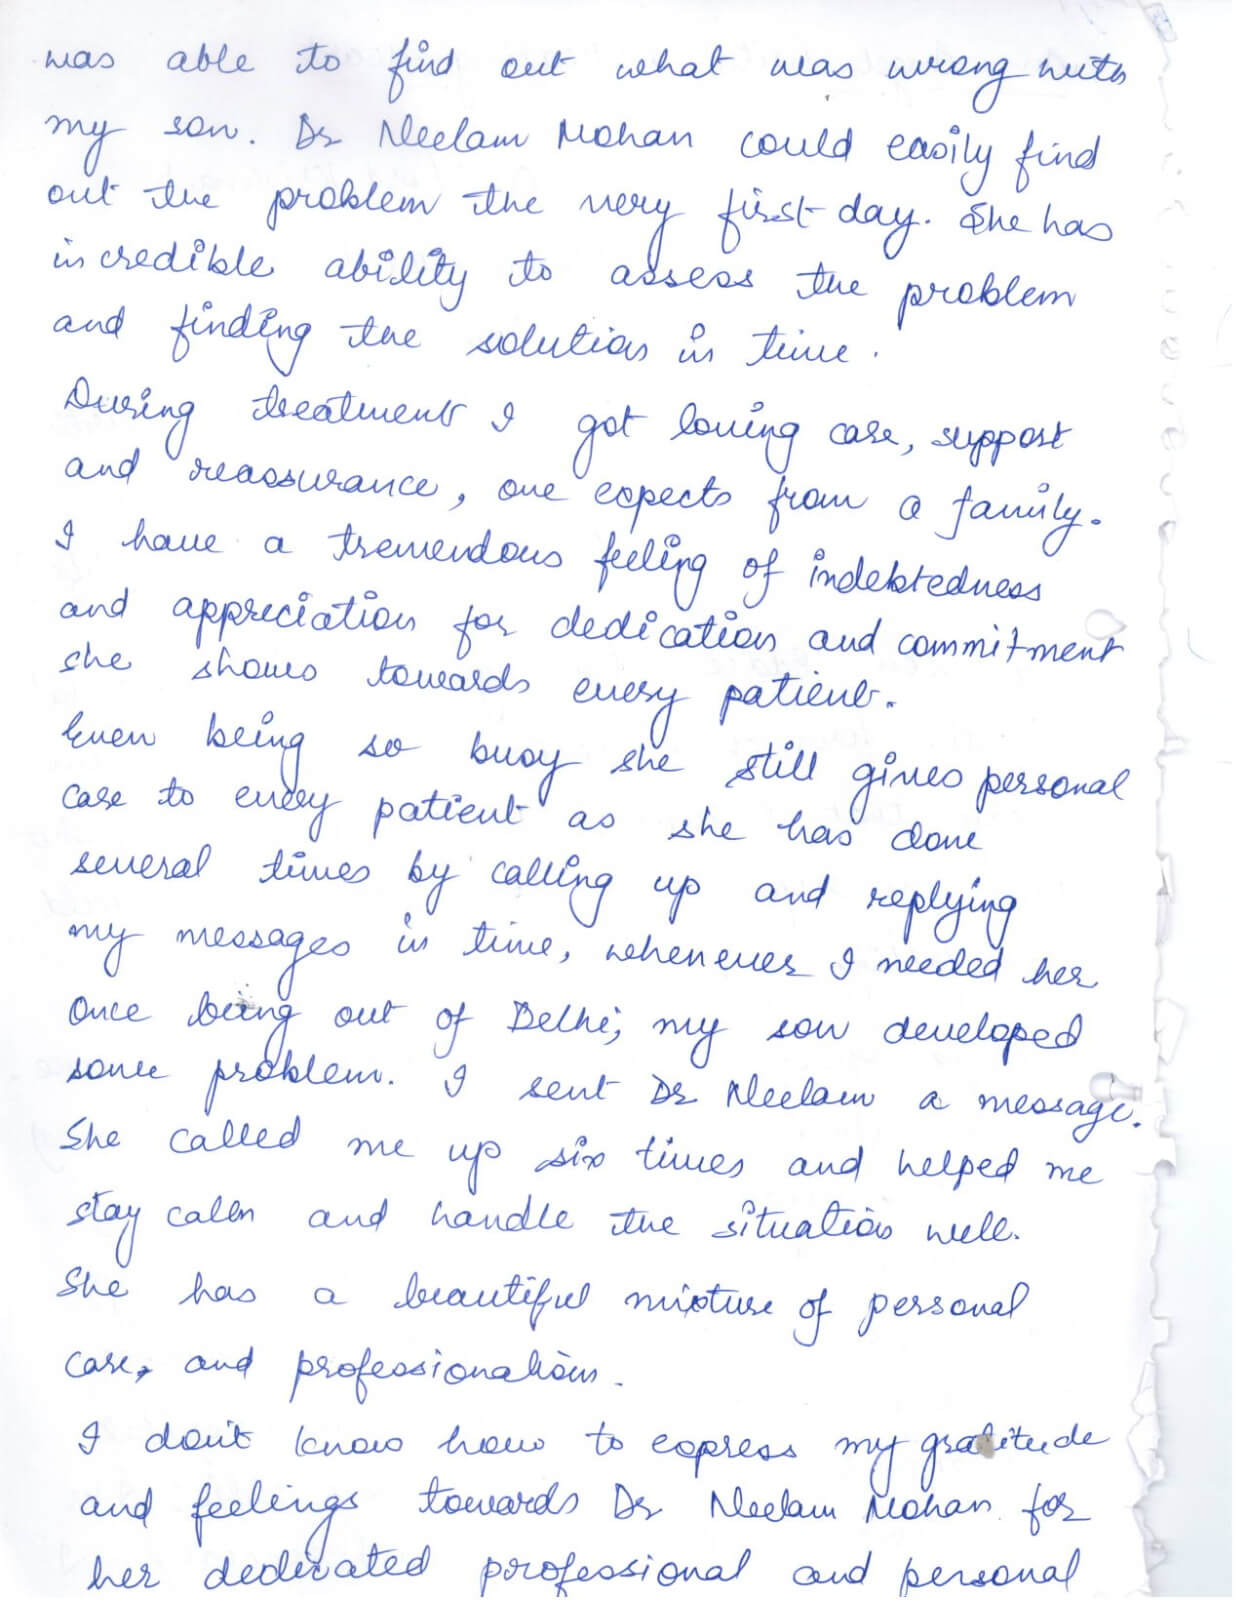 was able to find out what was wrong with
my son. Dr Neelam Mohan could easily find
out the problem the very first day. She has
incredible ability to assess the problem
and finding the solution in time.
During treatment I got loving care, support
and reassurance, one expects from a family.
I have a tremendous feeling of indebtedness
and appreciation for dedication and commitment
she shows towards every patient.
Even being so busy she still gives personal
care to every patient as she has done
several times by calling up and replying
my messages in time, whenever I needed her
Once being out of Delhi, my son developed
some problem. I sent Dr Neelam a message.
She called me up six times and helped me
stay calm and handle the situation well.
She has a beautiful mixture of personal
care, and professionalism.
I don't know how to express my gratitude
and feelings towards Dr Neelam Mohan for
her dedicated professional and personal